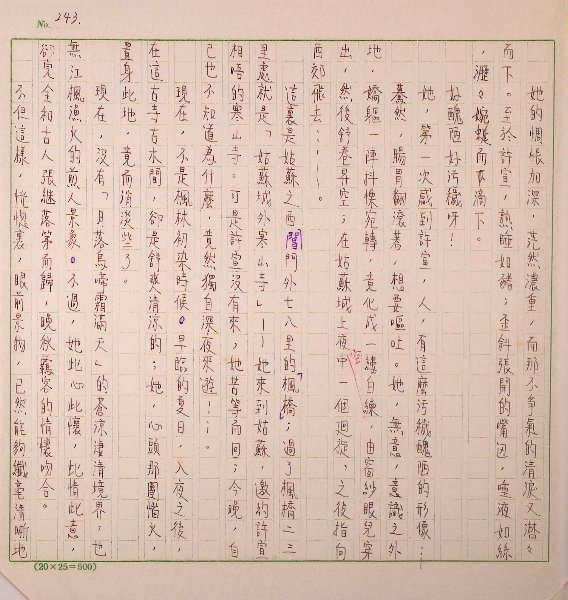 No. 243.
她的惆悵加深，茫然濃重，而那不爭氣的清淚又潛々
而下。至於許宣，熟睡如豬；歪斜張開的嘴巴，唾液如絲
，瀝々婉蜒而下滴下。
好醜陋好污穢呀！
她，第一次感到許宣，人，有這麼汚穢醜陋的形像；
驀然，腸胃翻滾著，想要嘔吐。她，無意，意識之外
地，嬌軀一陣抖慄宛轉，竟化成一縷白練，由窗紗眼兒穿
出，然後舒卷昇空；在姑蘇城上夜空中一個迴旋，之後指向
西郊飛去……。
這裏是姑蘇之西閶門外七八里的「楓橋」；過了楓橋二三
里處就是「姑蘇城外寒山寺」——她來到姑蘇，邀約許宣
相晤的寒山寺。可是許宣沒有來，她苦等而回；今晚，自
己也不知道為什麼，竟然獨自深夜來遊……。
現在，不是楓林初染時候。早臨的夏日，入夜之後，
在這古寺古木間，卻是舒爽清涼的；她，心頭那團惱火，
置身此地，竟而消淡些了。
現在，沒有「月落烏啼霜滿天」的蒼涼淒清境界，也
無江楓漁火的煎人景象。不過，她此心此懷，此情此意，
卻完全和古人張繼落第而歸，晚秋羈客的情懷吻合。
不但這樣，恍惚裏，眼前景物，已然能夠纖毫清晰地
(20×25=500)